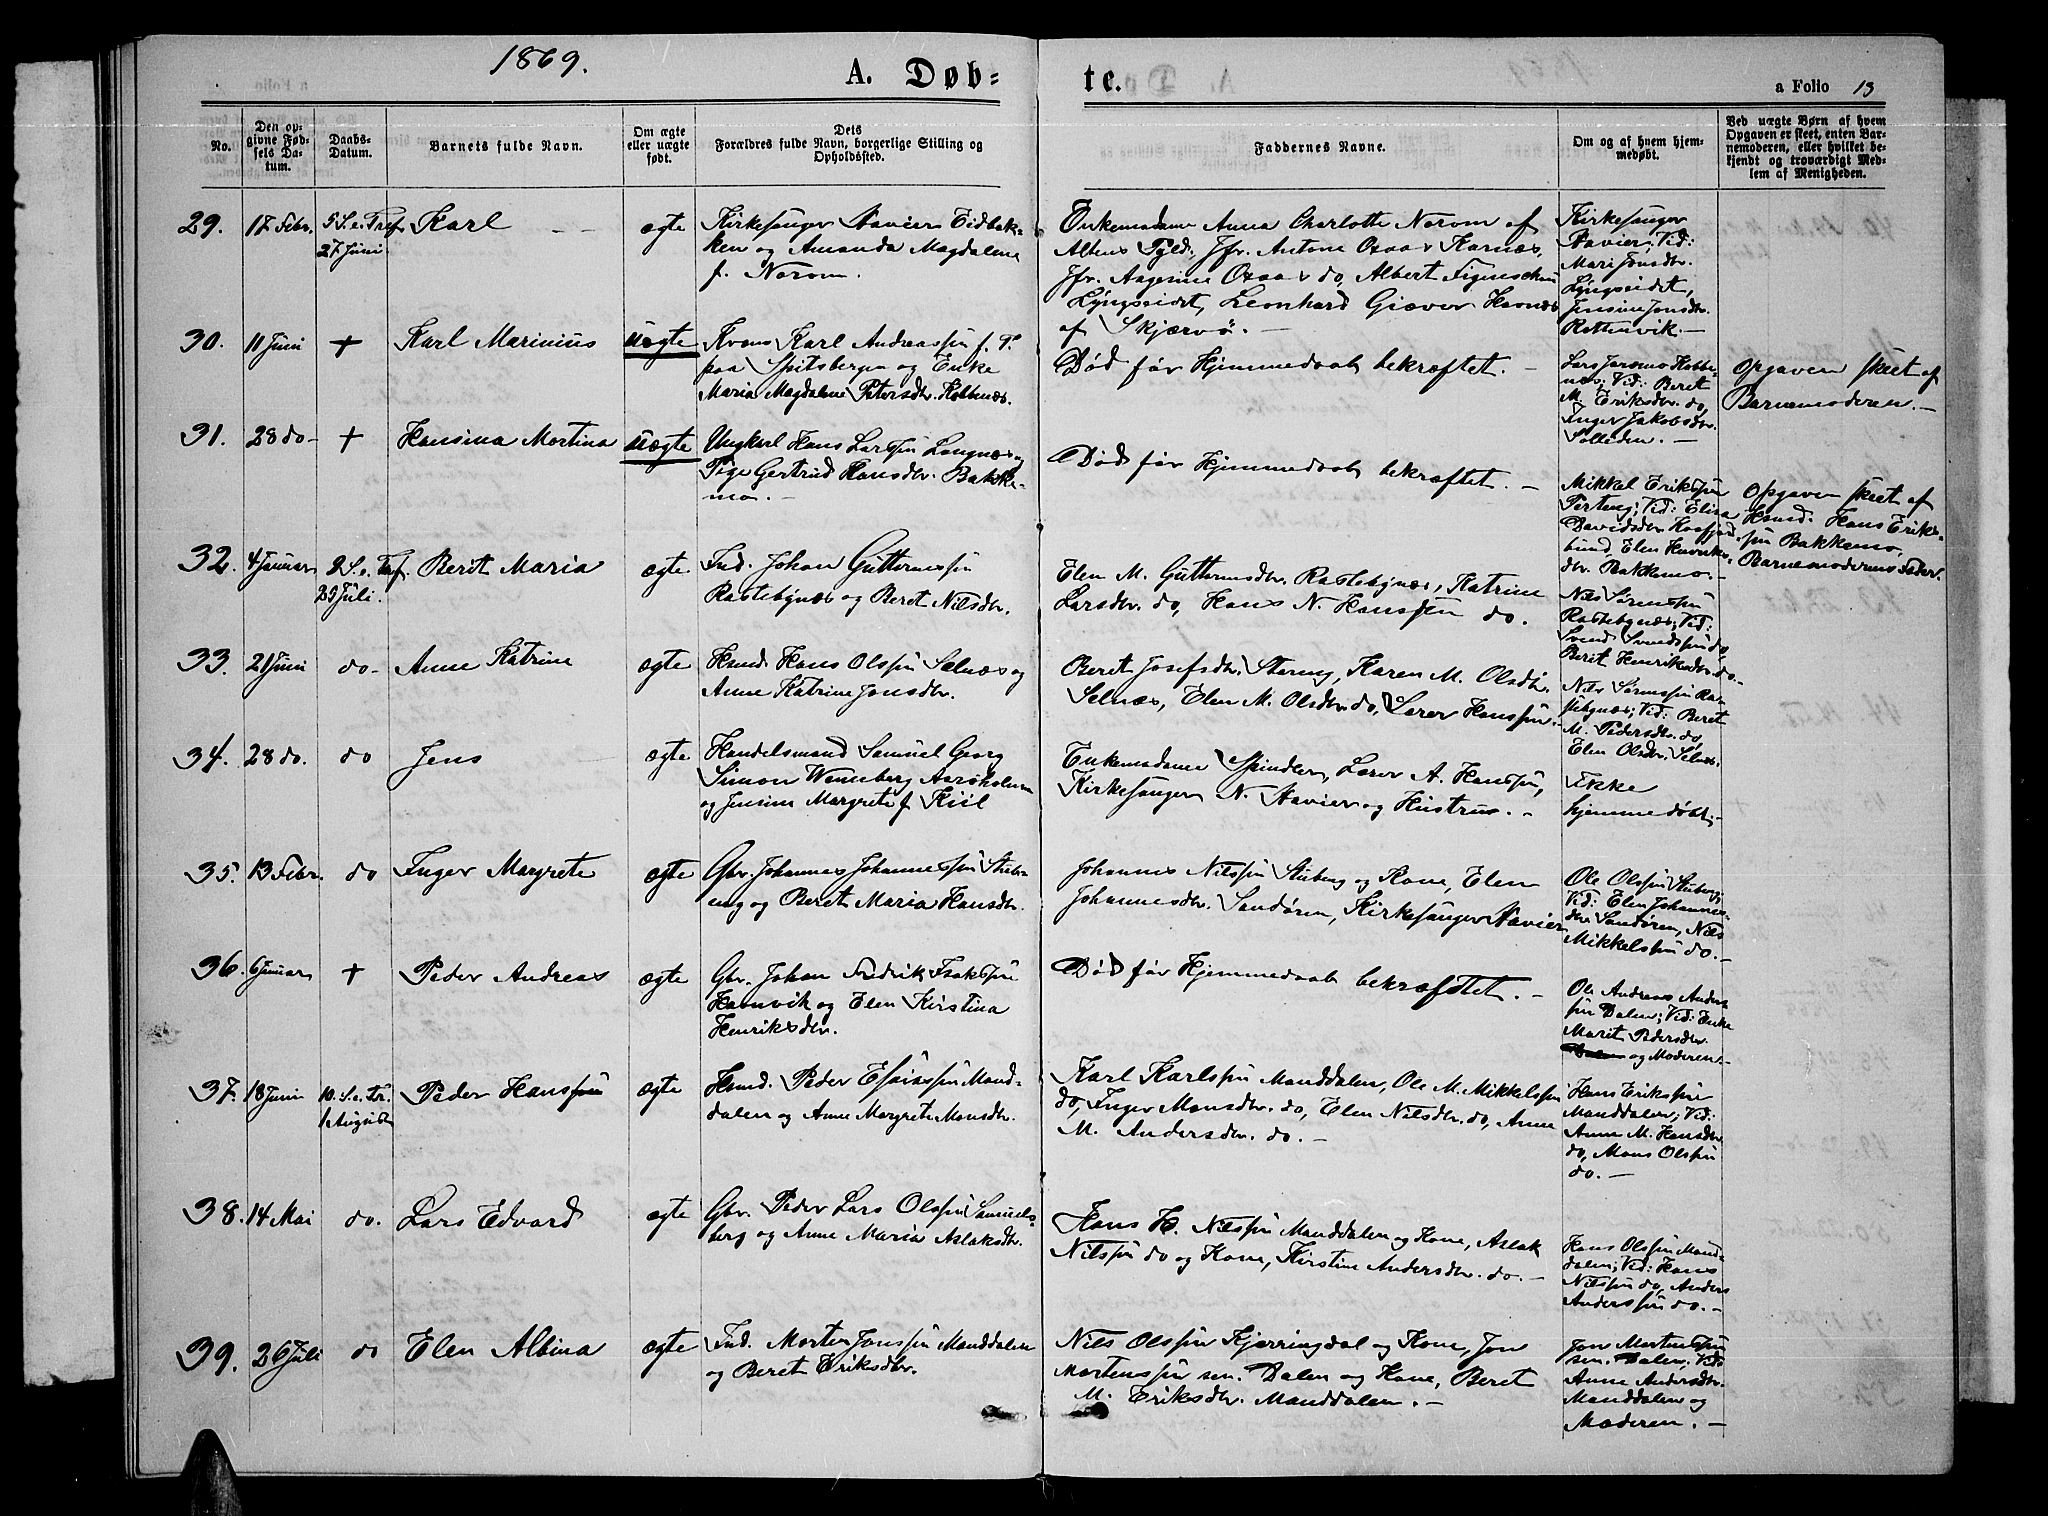 1869.
A. Døb=
te.
a Folio 13
No.
Den op=
givne Fød=
sels Da=
tum.
Daabs=
Datum.
Barnets fulde Navn.
Om ægte
eller uægte
født.
Dets
Forældres fulde Navn, borgerlige Stilling og
Opholdssted.
Faddernes Navne.
Om og af hvem hjem=
medøbt.
Ved uægte Børn af hvem
Opgaven er skeet, enten Bar=
nemoderen, eller hvilket be=
kjendt og troværdigt Med=
lem af Menigheden.
29.
17 Febr.
5 S. e. Tref.
27 Juni.
Karl
ægte
Kirkesanger Xavier Eidbak=
ken og Amanda Magdalene
f. Norom.
Enkemadame Anna Charlotte Norom af
Altens Pgld. Jfr. Antone Karnæs,
Jfr. Aagenine do, Albert Figenschau
Lyngseidet, Leonhard Giæver Havnæs
af Skjærvö. —
Kirkesanger
Xavier; Vid:
Mari Jonsdtr.
Lyngseidet,
Jensine Jonsdtr.
Rottenvik. —
30.
11 Juni
+
Karl Marinius
uægte
Kvæns Karl Andreassen f. T.
paa Spitsbergen og Enke
Maria Magdalene Petersdtr. Kobbnæs.
Død før Hjemmedaab bekræftet. —
Lars Kobbe=
næs; Vid: Beret
M. Eriksdtr. do,
Inger Jakobsdtr.
Solleden. —
Opgaven skeet af
Barnemoderen. —
31.
28 do —
+
Hansina Martina
uægte
Ungkarl Hans Larssen Langnæs og
Pige Gertrud Hansdtr. Bakke=
mo. —
Død før Hjemmedaab bekræftet. —
Mikkel Erikssen
Vid: Elisa
Davidsdtr.
Elen Henriks=
dtr. Bakkemo. —
Opgaven skeet af
Hsmd. Hans Eriks=
sen Bakkemo,
Barnemoderens Fader.
32.
4 Januar
9 S. e. Tref.
25 Juli.
Berit Maria
ægte
Ind. Johan Guttormssen
Rastebynæs og Beret Nilsdtr.
Elen M. Guttormsdtr. Rastebynæs, Katrine
Larsdtr. do, Hans N. Hanssen do.
Nils Sørenssen
Rastebynæs; Vid:
Svend Svendssen do,
Berit Henriksdtr. do —
33.
21 Juni
do —
Anne Katrine
ægte
Hsmd. Hans Olssen Selnæs og
Anne Katrine Jonsdtr.
Beret Josefsdtr. Karen M. Olsdtr.
Selnæs, Elen M. Olsdtr. do, Lærer Hanssen —
Nils Sørenssen Ra=
stebynæs; Vid: Beret
M. Pedersdtr. do,
Elen Olsdtr. Selnæs.
34.
28 do.
do
Jens
ægte
Handelsmand Samuel Georg
Simon Wenneberg Aarøholmen
og Jensine Margrete f. Kiil
Enkemadame Spindler, Lærer A. Hanssen,
Kirkesanger N. Xavier og Hustrue. —
Ikke
hjemmedøbt. —
35.
13 Febr.
do
Inger Margrete
ægte
Gbr. Johannes Johannessen Stube=
eng og Beret Maria Hansdtr.
Johannes Nilssen Stubeng og Kone, Elen
Johannesdtr. Sandøren, Kirkesanger Xavier
Ole Olssen Stubeng;
Vid: Elen Johannes=
dtr. Sandøren, Nils
Mikkelssen do. —
36.
6 Januar
+
Peder Andreas
ægte
Gbr. Johan Fredrik Isakssen
Hamvik og Elen Kirstina
Henriksdtr.
Død før Hjemmedaab bekræftet. —
Ole Andreas Anders=
sen Dalen; Vid: Enke
Marit Pedersdtr.
Dalen og Moderen. —
37.
18 Juni
10. S. e. Tr.
1 August
Peder Hanssen
ægte
Hsmd. Peder Esaiassen Mand=
dalen og Anne Margrete Monsdtr.
Karl Karlssen Manddalen, Ole M. Mikkelssen
do, Inger Monsdtr. do, Elen Nilsdtr. do, Anne
M. Andersdtr. do. —
Hans Erikssen
Manddalen; Vid:
Anne M. Hansdtr.
do, Mons Olssen
do. —
38.
14 Mai
do.
Lars Edvard
ægte
Gbr. Peder Lars Olssen Samuels=
berg og Anne Maria Aslaksdtr.
Hans H. Nilssen Manddalen og Kone, Aslak
Nilssen do og Kone, Kirstine Andersdtr. do. —
Hans Olssen Mand=
dalen; Vid: Hans
Nilssen do, Anders
Anderssen do. —
39.
26 Juli
do
Elen Albina
ægte
Ind. Morten Jonssen Manddalen
og Beret Eriksdtr.
Nils Olssen Kjerringdal og Kone, Jon
Mortenssen sen. Dalen og Kone, Beret
M. Eriksdtr. Manddalen. —
Jon Mortenssen
sen. Dalen. Vid:
Anne Andersdtr.
Manddalen og
Moderen. —